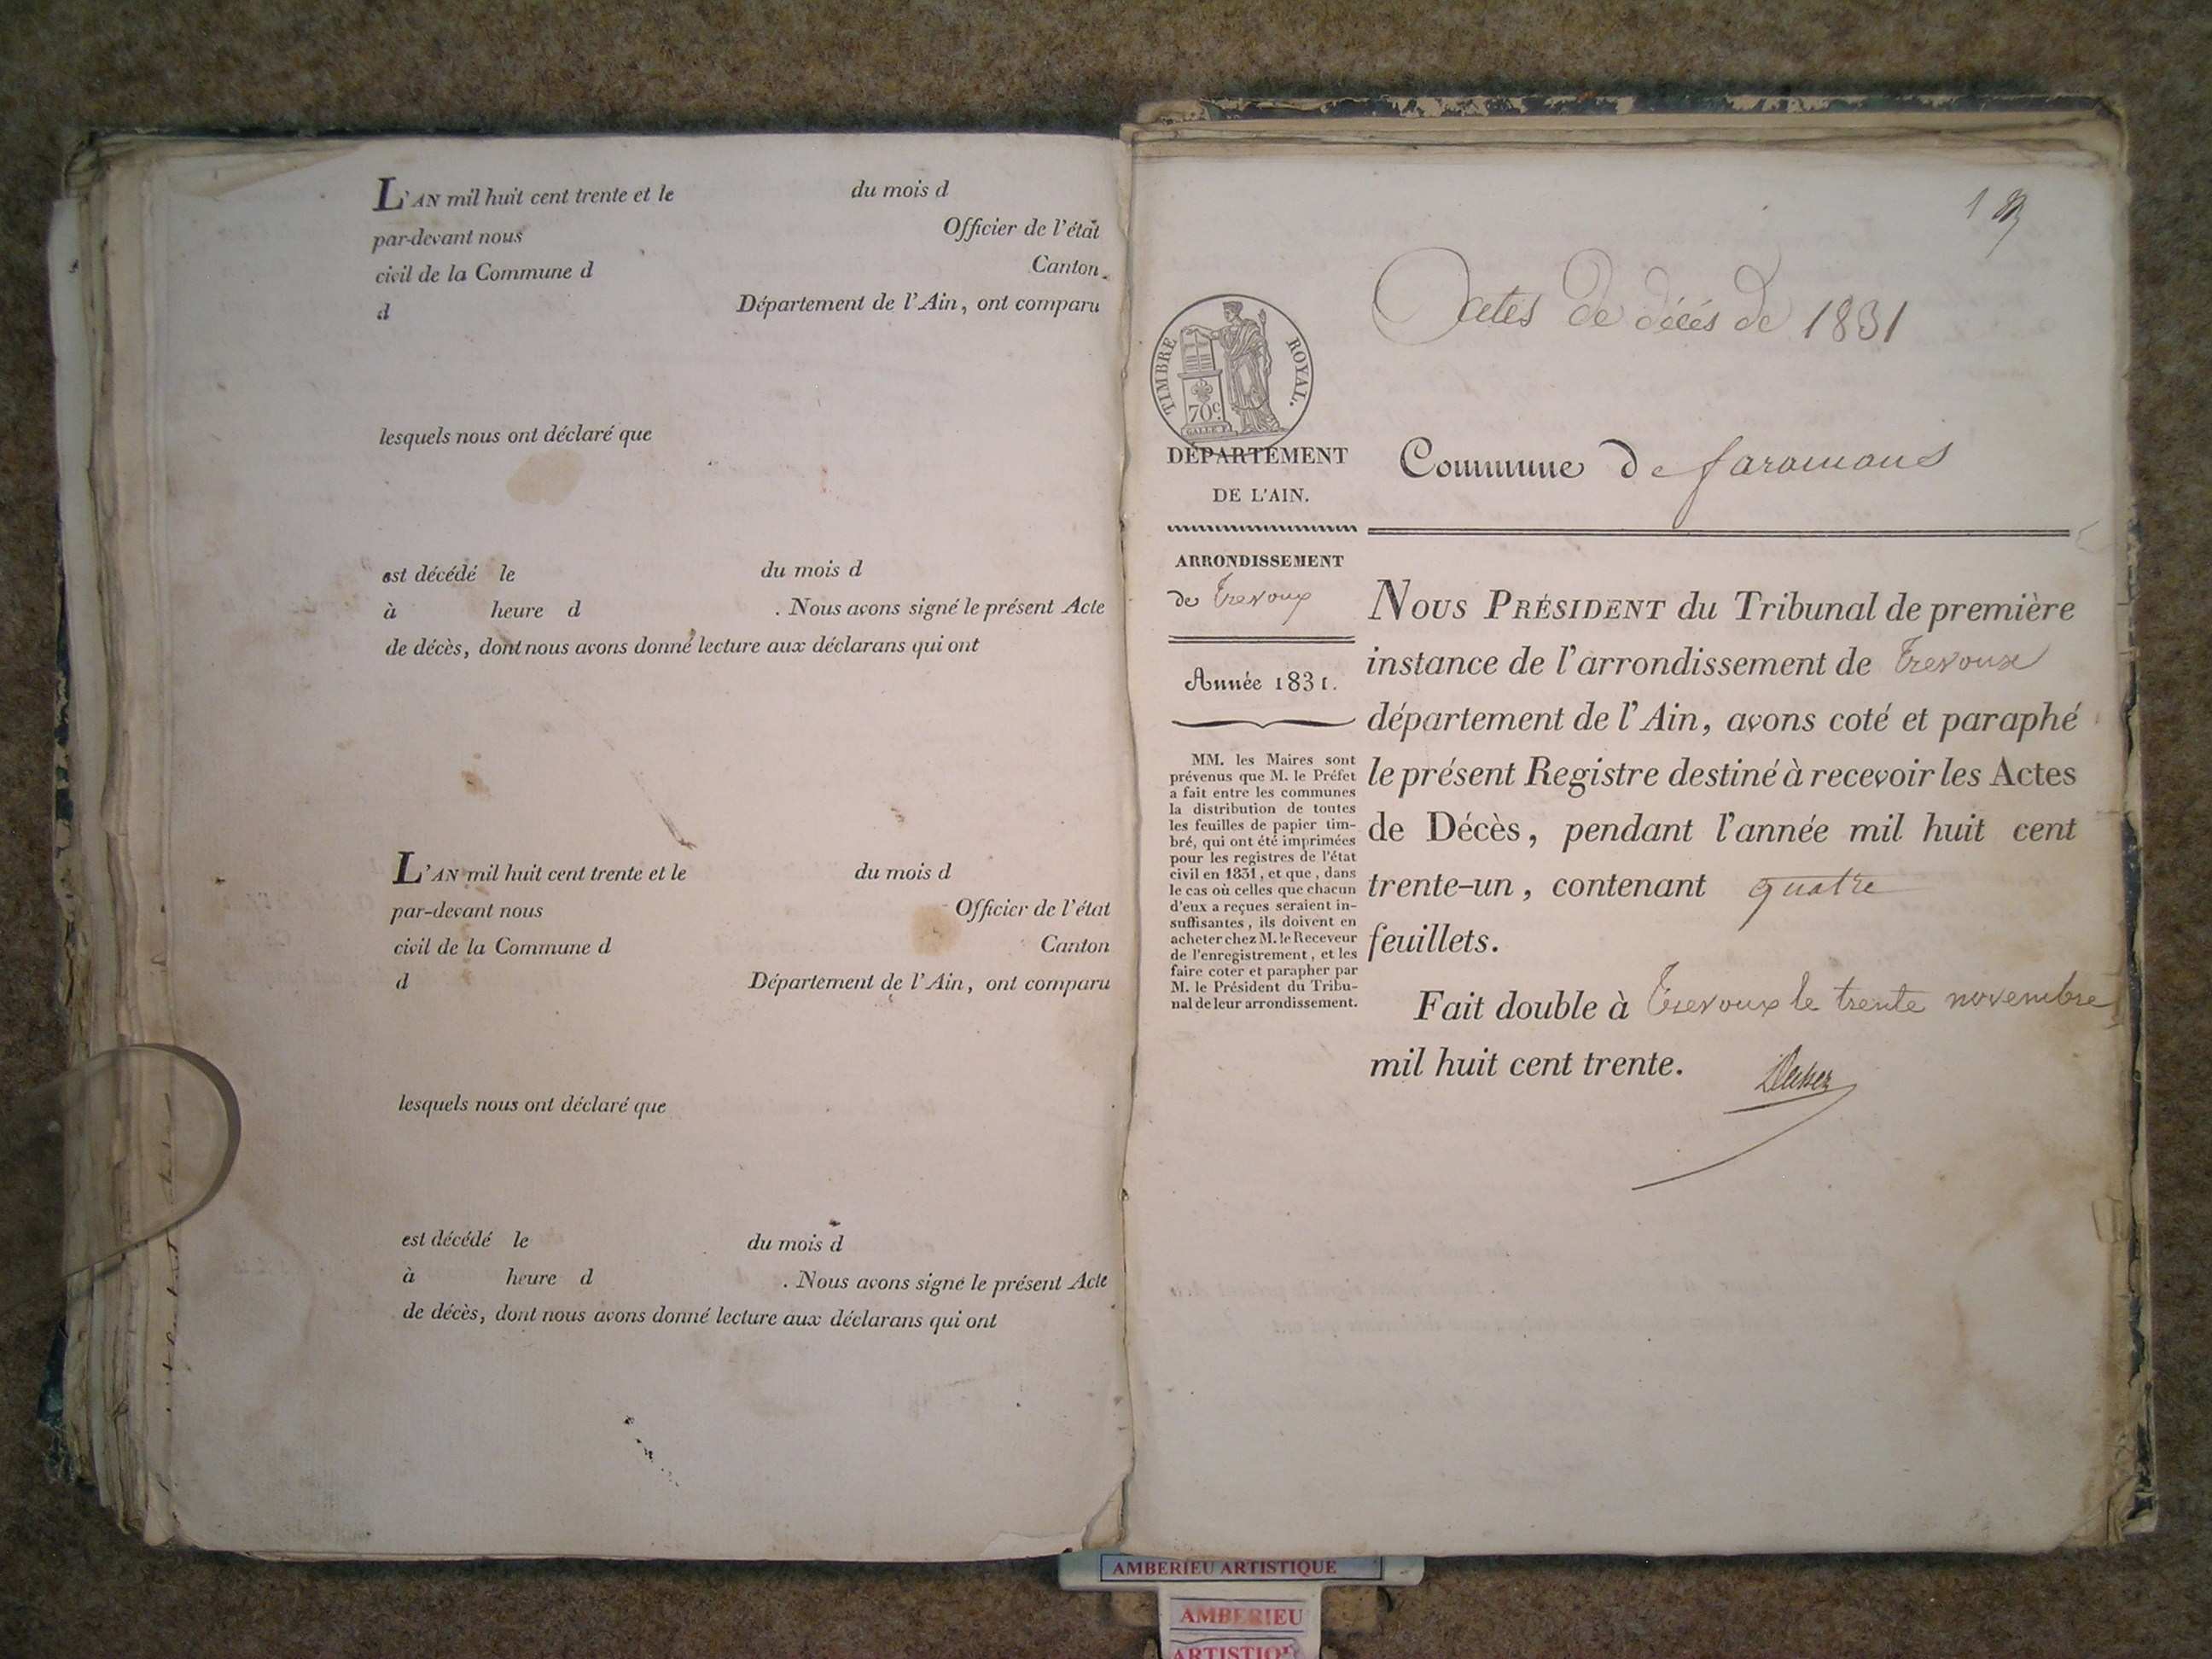 L'AN mil huit cent trente et le du mois d
par-devant nous Officier de l'état
civil de la Commune d Canton
d Département de l'Ain, ont comparu
lesquels nous ont déclaré que
est décédé le du mois d
à heure d . Nous avons signé le présent Acte
de décès, dont nous avons donné lecture aux déclarans qui ont
L'AN mil huit cent trente et le du mois d
par-devant nous Officier de l'état
civil de la Commune d Canton
d Département de l'Ain, ont comparu
lesquels nous ont déclaré que
est décédé le du mois d
à heure d . Nous avons signé le présent Acte
de décès, dont nous avons donné lecture aux déclarans qui ont
1
Actes de décés de 1831
TIMBRE ROYAL.
70c.
GALLE F.
DÉPARTEMENT
DE L'AIN.
Commune de faramans
ARRONDISSEMENT
de Trevoux
Année 1831.
MM. les Maires sont
prévenus que M. le Préfet
a fait entre les communes
la distribution de toutes
les feuilles de papier tim-
bré, qui ont été imprimées
pour les registres de l'état
civil en 1831, et que, dans
le cas où celles que chacun
d'eux a reçues seraient in-
suffisantes, ils doivent en
acheter chez M. le Receveur
de l'enregistrement, et les
faire coter et parapher par
M. le Président du Tribu-
nal de leur arrondissement.
NOUS PRÉSIDENT du Tribunal de première
instance de l'arrondissement de Trevoux
département de l'Ain, avons coté et paraphé
le présent Registre destiné à recevoir les Actes
de Décès, pendant l'année mil huit cent
trente-un, contenant quatre
feuillets.
Fait double à Trevoux le trente novembre
mil huit cent trente.
AMBERIEU ARTISTIQUE
AMBERIEU
ARTISTIQUE